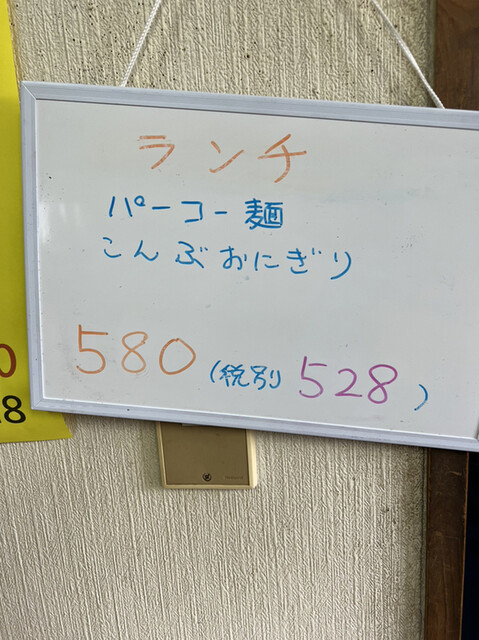 ランチ
パーコー麺
こんぶおにぎり
580 (税別 528)
0
8